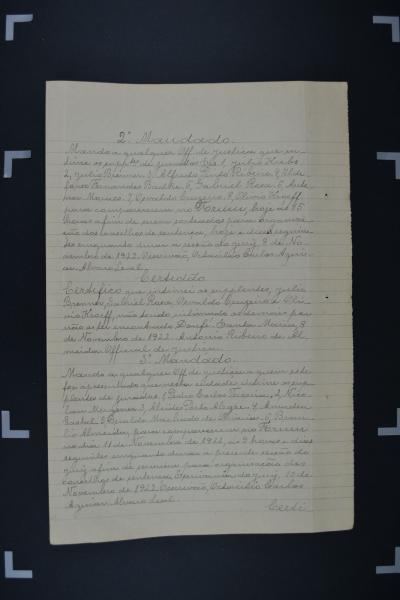 2º Mandado.
Mando a qualquer Off. de justiça que in-
time os suppes de jurados Dra. 1, Julio Krebs
2, Julio Brenner 3, Alfredo Pinto Ribeiro 4, Ilde-
fonso Fernandes 5, Gabriel Rosa 6, Ante-
nor Moraes 7, Osvaldo Cruzeiro 8, Olivio Kroeff
para comparecerem no Forum, hoje as 15
horas afim de serem sorteados para organisa-
ção do conselho de sentença, hoje e dias seguin-
tes enquanto durar a sessão do jury. 8 de No-
vembro de 1922. O escrivão, Octacilio Carlos Aguir-
re. Alvaro Leal.
Certidão
Certifico que intimei os supplentes, Julio
Brenner, Gabriel Rosa Osvaldo Cruzeiro e Oli-
vio Kroeff, não tendo intimado os demais por
não os ter encontrado. Dou fé. Santa Maria, 8
de Novembro de 1922. Antonio Ribeiro de Al-
meida Official de justiça.
3º Mandado.
Mando a qualquer Off. de justiça a quem este
for apresentado que nesta cidade intime os sup-
plentes de jurados 1, Pedro Carlos Teixeira, 2, Nico-
lau 3, Alcides Porto Alegre 4, Amadeu
5, Geraldo Machado de 6,
Almeida, para comparecerem no Forum
no dia 11 de Novembro de 1922, as 9 horas e dias
seguintes enquanto durar a presente sessão do
jury afim de servirem para organisação dos
conselhos de sentença. Escrivania do jury, 10 de
Novembro de 1922. O escrivão, Octacilio Carlos
Aguirre. Alvaro Leal.
Certi-